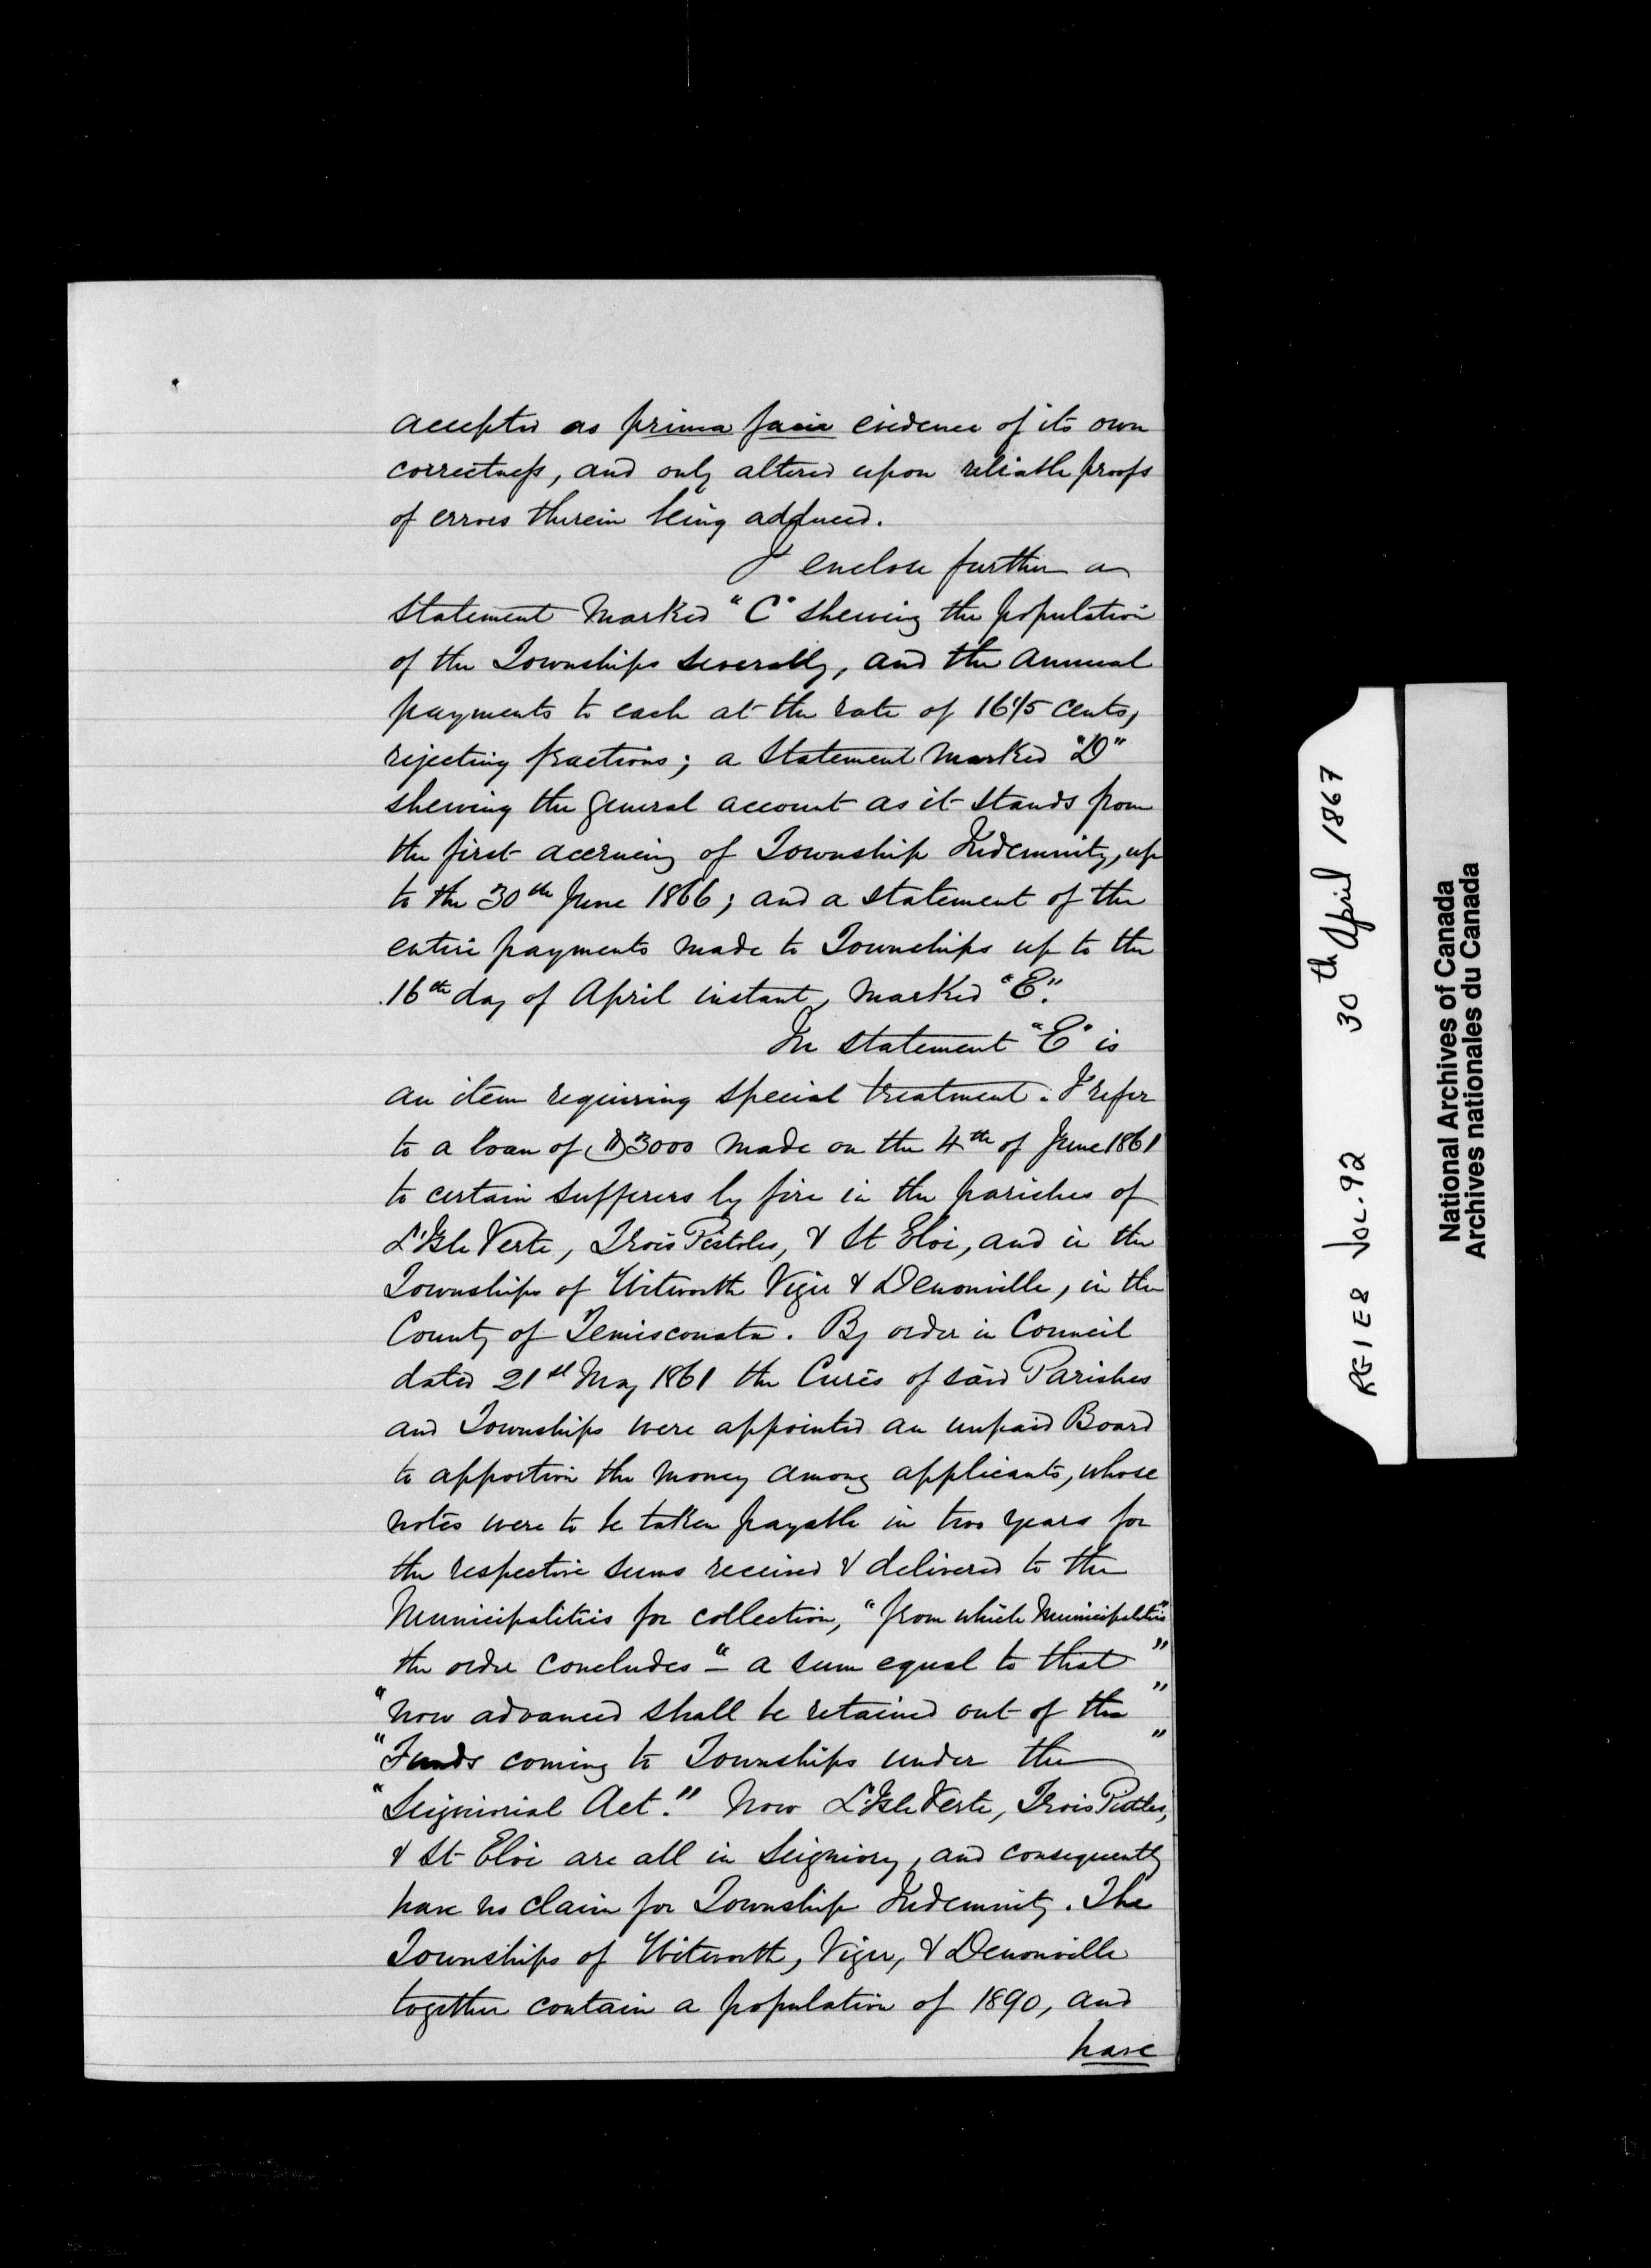 accepted as prima facie evidence of its own
correctness, and only altered upon reliable proofs
of errors therein being adduced.
I enclose further a
statement marked "C" shewing the population
of the Townships severally, and the annual
payments to each at the rate of 16 1/5 cents,
rejecting fractions; a statement marked "D"
shewing the general account as it stands from
the first accruing of Township Indemnity, up
to the 30th June 1866; and a statement of the
entire payments made to Townships up to the
16th day of April instant, marked "E".
In statement "E" is
an item requiring special treatment. I refer
to a loan of $3000 made on the 4th of June 1861
to certain sufferers by fire in the parishes of
L'Isle Verte, Trois Pistoles, & St Eloi, and in the
Townships of Witworth Viger & Denonville, in the
County of Temisconata. By order in Council
dated 21st May 1861 the Curés of said Parishes
and Townships were appointed an unpaid Board
to apportion the money among applicants, whose
notes were to be taken payable in two years for
the respective sums received & delivered to the
Municipalities for collection, "from which Municipalities"
the order concludes – "a sum equal to that"
"now advanced shall be retained out of the"
"Funds coming to Townships under the"
"Seigniorial Act." Now L'Isle Verte, Trois Pistoles,
& St Eloi are all in Seigniory, and consequently
have no claim for Township Indemnity. The
Townships of Witworth, Viger, & Denonville
together contain a population of 1890, and
have
RG1E8 VOL. 92 30th April 1867
National Archives of Canada
Archives nationales du Canada